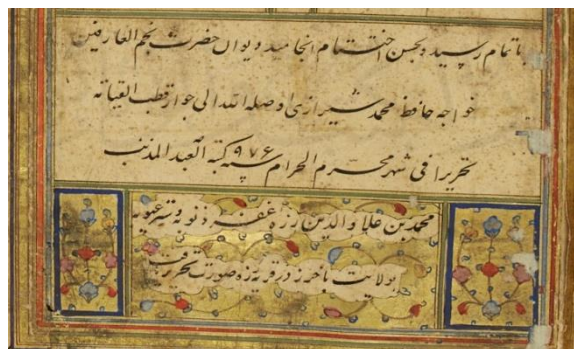 باتمام رسید و بحسن اختتام انجامید دیوان حضرت نجم العارفین
خواجه حافظ محمد شیرازی اوصله الله الی جوار قطب
تحریرا فی شهر محرم الحرام سنه ۹۷۶ کتبه العبد المذنب
محمد بن علاوالدین رزه غفر ذنوبه و ستر عیوبه
بولایت باخرز در قریه رزه صورت تحریر یافت